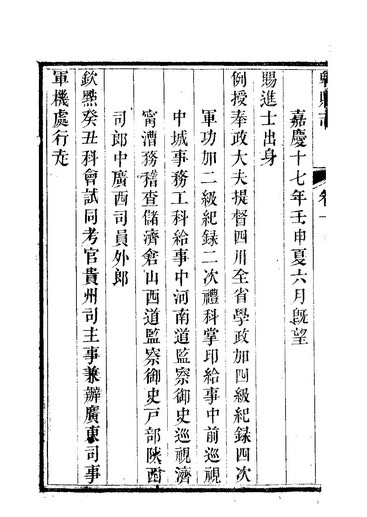 嘉慶十七年壬申夏六月既望
賜進士出身
例授奉政大夫提督四川全省學政加四級紀錄四次
軍功加二級紀錄二次禮科掌印給事中前巡視
中城事務工科給事中河南道監察御史巡視濟
甯漕務稽查儲濟倉山西道監察御史戸部陝西
司郎中廣西司員外郎
欽點癸丑科會試同考官貴州司主事兼辦廣東司事
軍機處行走